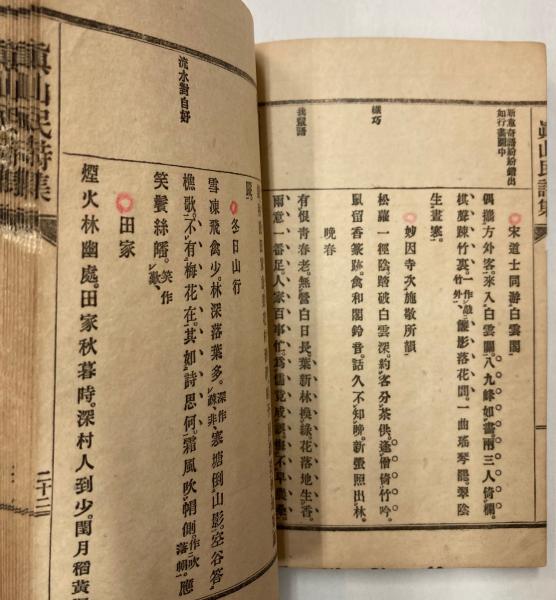 眞山民詩集
新意奇語紛紛錯出
如行畫圖中
宋道士同游白雲閣
偶攜方外客。來入白雲關。八九峰如畫。兩三人倚欄。
棋聲疎竹裏。一作竹外。簾影落花間。一曲瑤琴罷。翠陰
生晝寒。
纖巧
妙因寺次施敬所韻
松蘿一徑陰。踏破白雲深。約客分茶供。逢僧倚竹吟。
鼠留香篆跡。禽和閣鈴音。話久不知晩。新螢照出林。
晩春
有恨青春老。無營白日長。葉新林換綠。花落地生香。
雨意一番足。人家百事忙。
流水對自好
冬日山行
雪凍飛禽少。林深落葉多。深作疎、非、寒塘倒山影。空谷答
樵歌。不有梅花在。其如詩思何。霜風吹帽側。作吹落帽、應
笑鬢絲皤。笑作歎、
田家
煙火林幽處。田家秋暮時。深村人到少。閏月稻黃
二十二
眞山民詩集